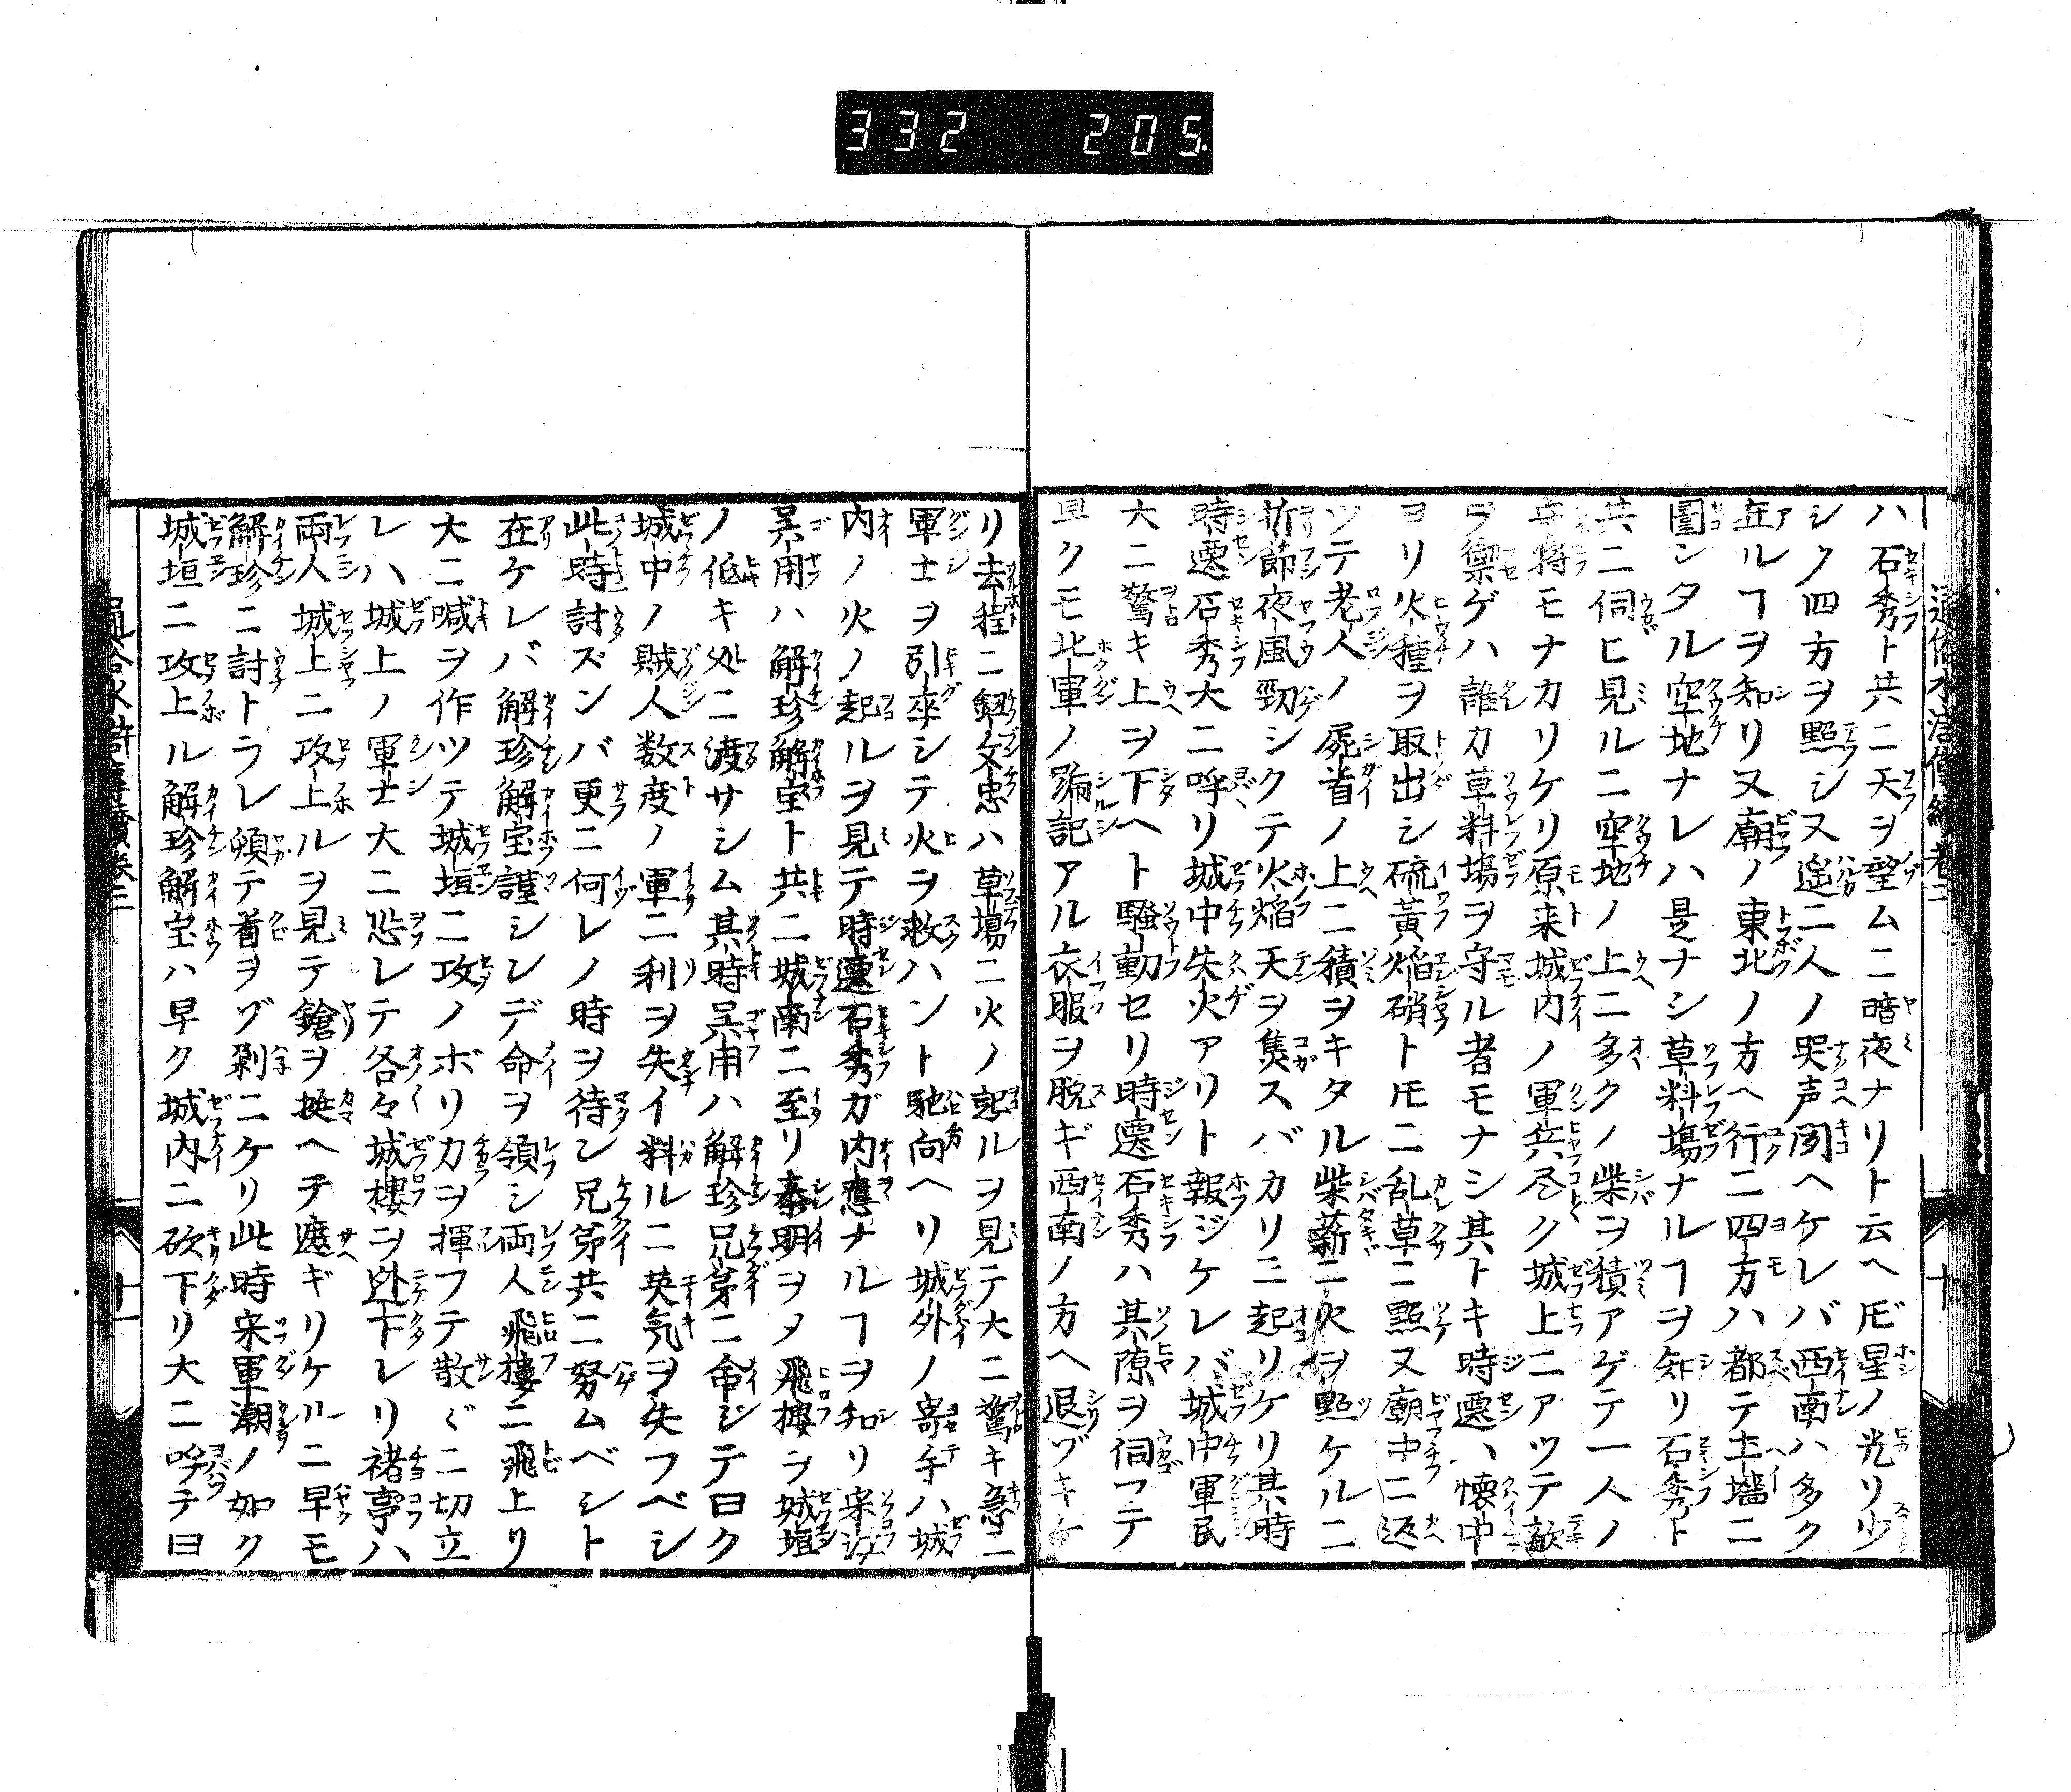 332 205.
ハ石秀ト共ニ天ヲ望ムニ暗夜ナリト云ヘ𪜈星ノ光リ少
シノ四方ヲ照シ又遥ニ人ノ哭声聞ヘケレバ西南ハ多ク
在ルヿヲ知リ又廟ノ東北ノ方ヘ行ニ四方ハ都テ土墻ニ
圍ンタル空地ナレハ是ナシ草料場ナルヿヲ知リ石秀ト
共ニ伺ヒ見ルニ空地ノ上ニ多クノ柴ヲ積アゲテ一人ノ
守将モナカリケリ原来城内ノ軍兵尽ク城上ニアツテ敵
ヲ禦ゲハ誰カ草料場ヲ守ル者モナシ其トキ時遷ハ懐中
ヨリ火種ヲ取出シ硫黄焔硝トモニ乱草ニ点又廟中ニ返
ツテ老人ノ屍首ノ上ニ積ヲキタル柴薪ニ火ヲ點ケルニ
折節夜風勁シクテ火焔天ヲ焦スバカリニ起リケリ其時
時遷石秀大ニ呼リ城中失火アリト報ジケレバ城中軍民
大ニ驚キ上ヲ下ヘト騒動セリ時遷石秀ハ其隙ヲ伺フテ
早クモ北軍ノ號記アル衣服ヲ脱ギ西南ノ方ヘ退ヅキケ
リ去程ニ鈕文忠ハ草場ニ火ノ起ルヲ見テ大ニ驚キ急ニ
軍士ヲ引率シテ火ヲ救ハント馳向ヘリ城外ノ寄手ハ城
内ノ火ノ起ルヲ見テ時遷石秀ガ内應ナルヿヲ知リ宋江
呉用ハ解珍解宝ト共ニ城南ニ至リ秦明ヲメ飛樓ヲ城垣
ノ低キ処ニ渡サシム其時呉用ハ解珍兄弟ニ命ジテ曰ク
城中ノ賊人数度ノ軍ニ利ヲ失イ料ルニ英気ヲ失フベシ
此時討ズンバ更ニ何レノ時ヲ待ン兄弟共ニ努ムベシト
在ケレバ解珍解宝謹シンデ命ヲ領シ両人飛樓ニ飛上リ
大ニ喊ヲ作ツテ城垣ニ攻ノボリ力ヲ揮フテ散〻ニ切立
レハ城上ノ軍士大ニ恐レテ各々城樓ヲ迯下レリ褚亨ハ
両人城上ニ攻上ルヲ見テ鎗ヲ挺ヘテ遮ギリケルニ早モ
解珍ニ討トラレ頓テ首ヲゾ剥ニケリ此時宋軍潮ノ如ク
城垣ニ攻上ル解珍解宝ハ早ク城内ニ砍下リ大ニ呼テ曰